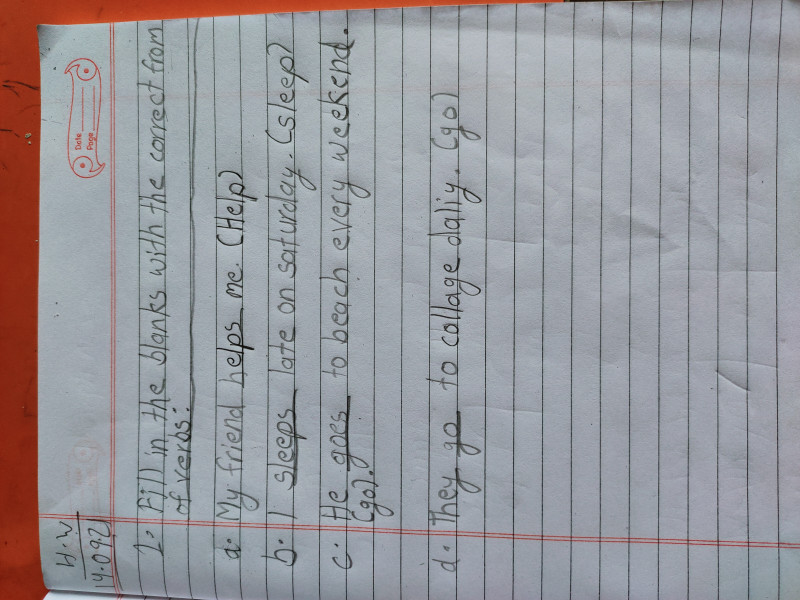 H.W
14.092
Date
Page
1. Fill in the blanks with the correct from
of verbs:
a. My friend helps me. (Help)
b. I sleeps late on saturday. (sleep)
c. He goes to beach every weekend.
(go).
d. They go to collage daliy. (go)